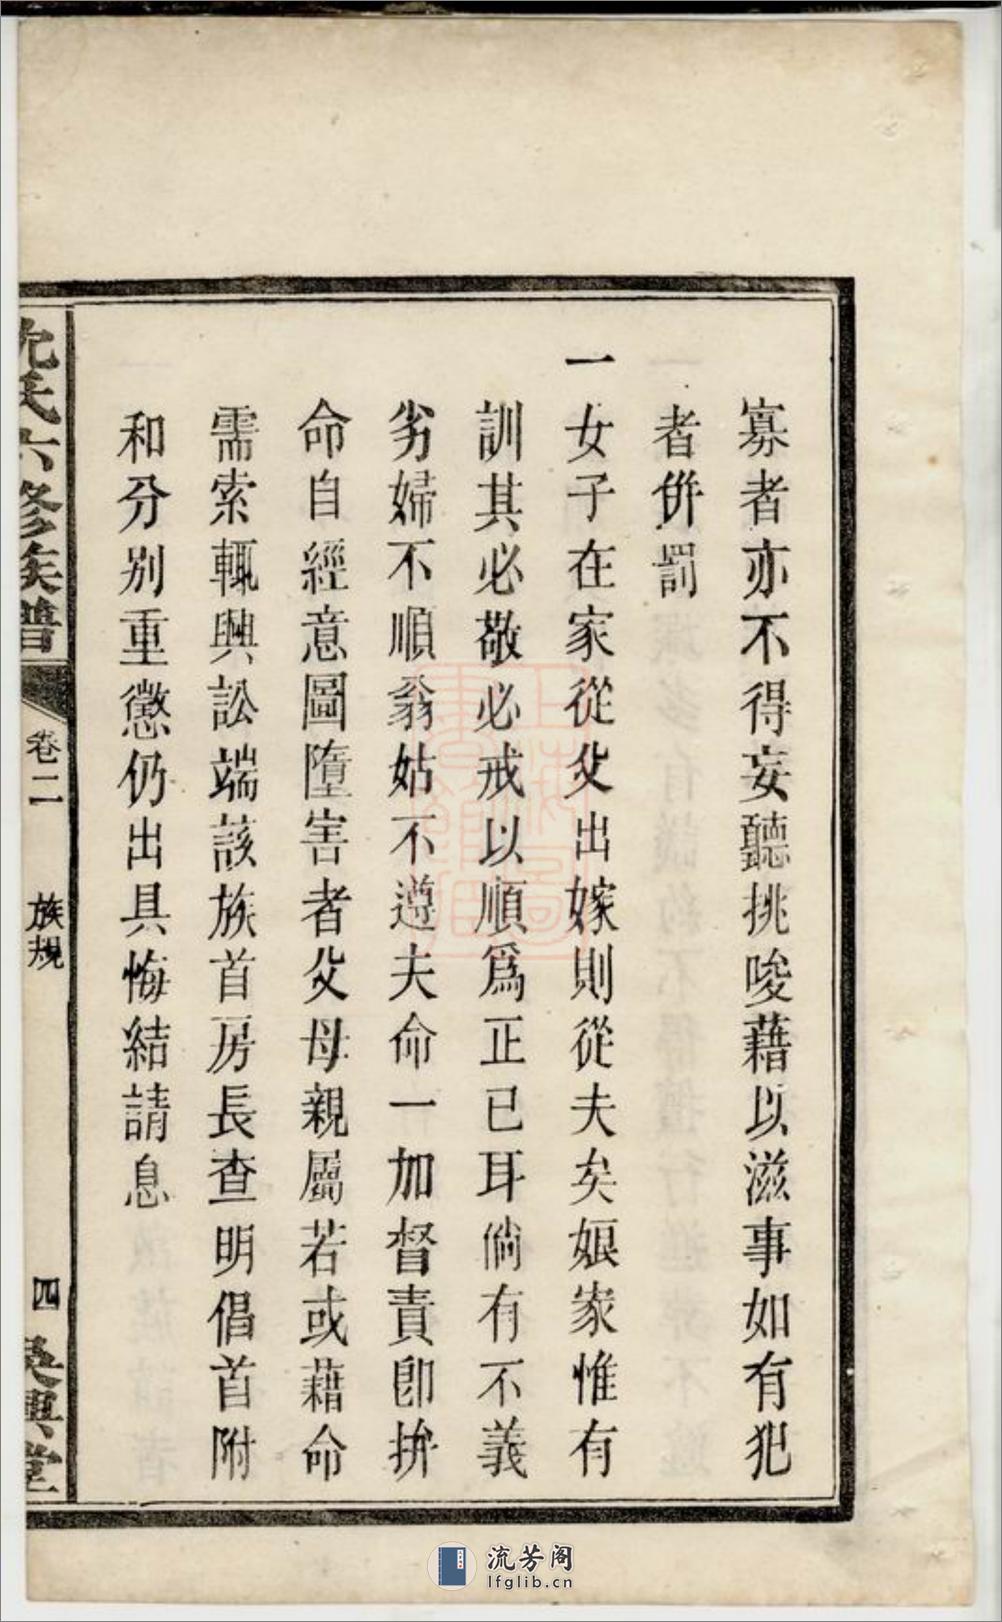 寡者亦不得妄聽挑唆藉以滋事如有犯
者併罰
一女子在家從父出嫁則從夫矣娘家惟有
訓其必敬必戒以順爲正已耳倘有不義
劣婦不順翁姑不遵夫命一加督責卽拚
命自經意圖墮害者父母親屬若或藉命
需索輒興訟端該族首房長查明倡首附
和分别重懲仍出具悔結請息
沈氏六修族譜 卷二 族規 四 吳興堂
上海圖書館藏
流芳阁
lfglib.cn